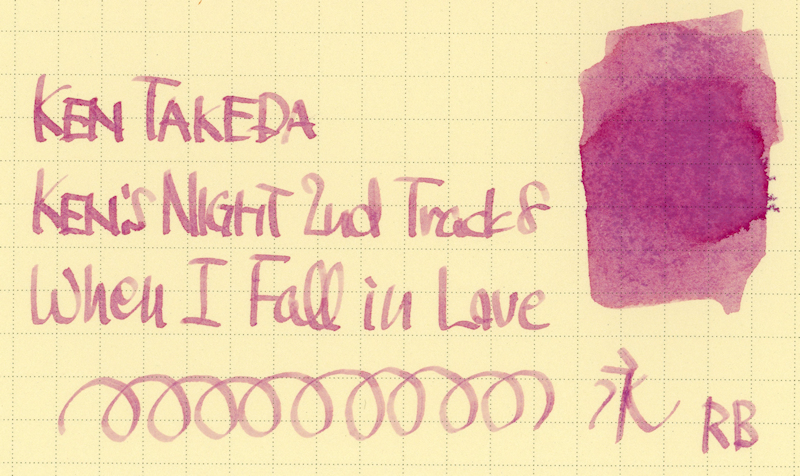 KEN TAKEDA
KEN'S NIGHT 2nd Track8
When I Fall in Love
永
RB